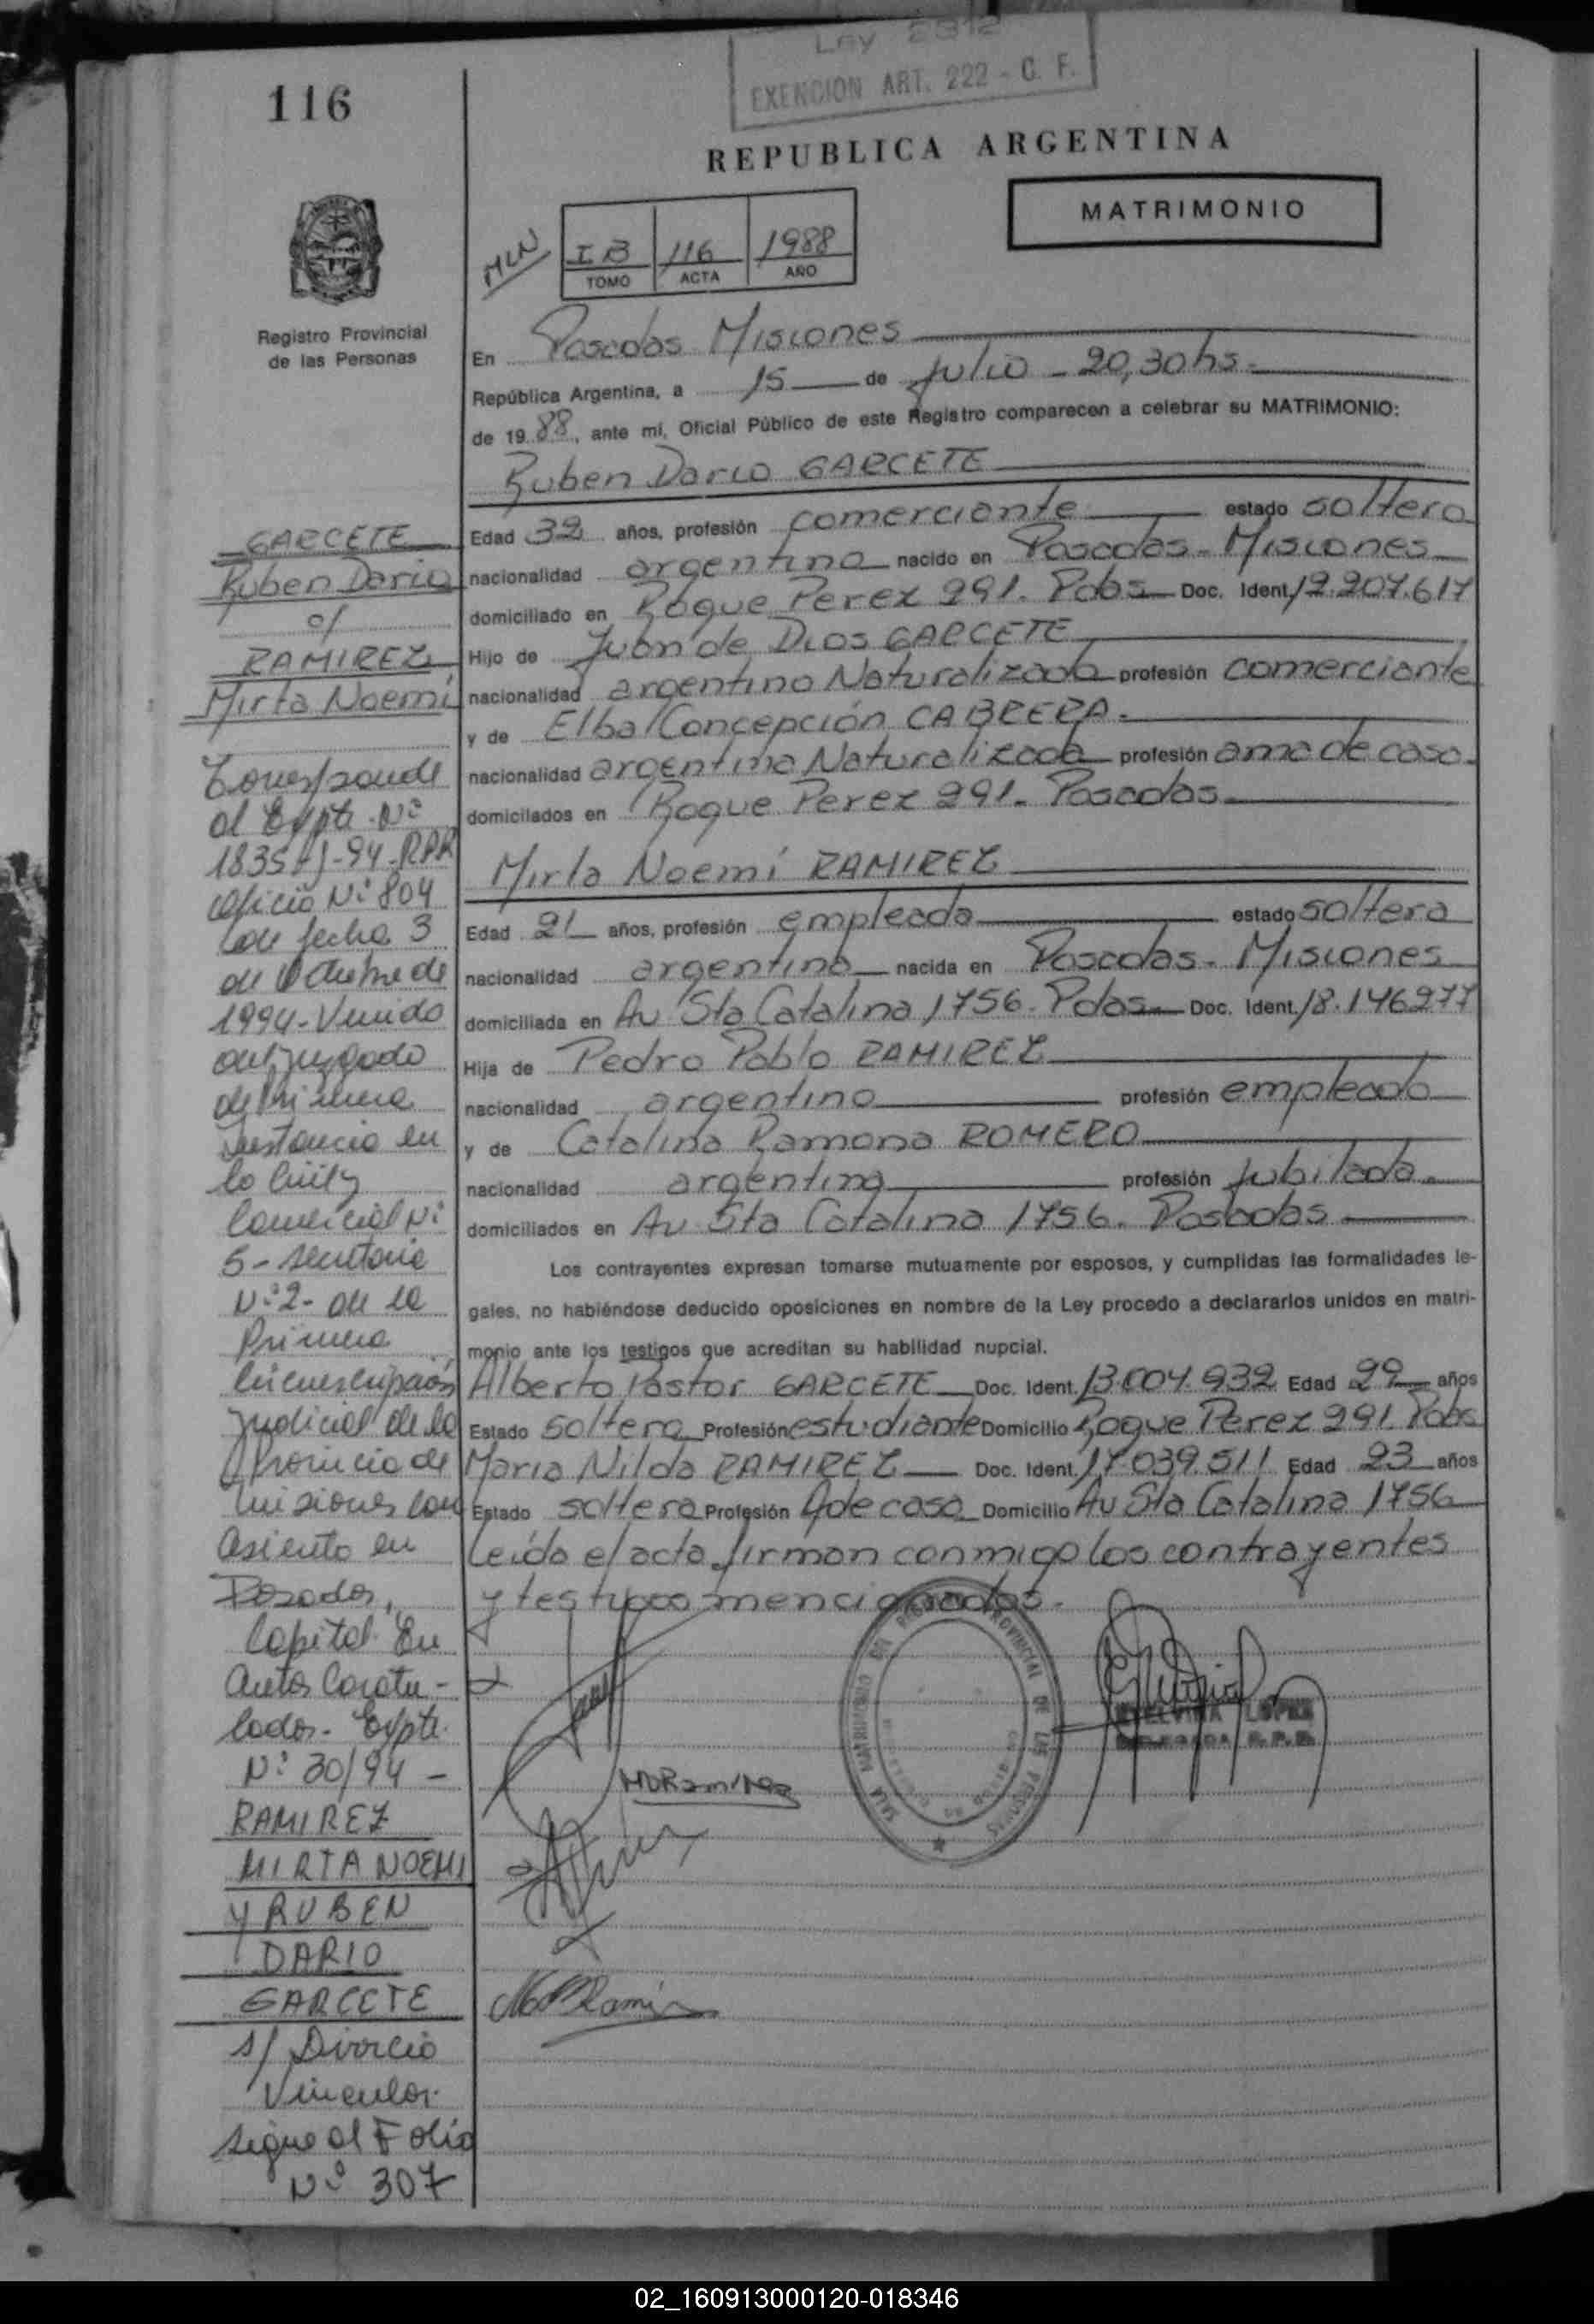 Ley 2312
EXENCION ART. 222 - C. F.
116
REPUBLICA ARGENTINA
MATRIMONIO
MLN
I B 116 1988
TOMO ACTA AÑO
Registro Provincial
de las Personas
En Posadas Misiones
República Argentina, a 15 de Julio - 20,30 hs.
de 1988, ante mi, Oficial Público de este Registro comparecen a celebrar su MATRIMONIO:
Ruben Dario GARCETE
Edad 32 años, profesión comerciante estado soltero
nacionalidad argentino nacido en Posadas - Misiones
domiciliado en Roque Perez 291. Pdas Doc. Ident. 12.207.617
Hijo de Juan de Dios GARCETE
nacionalidad argentino Naturalizado profesión comerciante
y de Elba Concepción CABRERA.
nacionalidad argentina Naturalizada profesión ama de casa.
domicilados en Roque Perez 291. Posadas.
Mirta Noemí RAMIREZ
Edad 21 años, profesión empleada estado soltera
nacionalidad argentina nacida en Posadas - Misiones
domiciliada en Av Sta Catalina 1756. Pdas. Doc. Ident. 18.146277
Hija de Pedro Pablo RAMIREZ
nacionalidad argentino profesión empleado
y de Catalina Ramona ROMERO
nacionalidad argentina profesión jubilada.
domiciliados en Av Sta Catalina 1756. Posadas
Los contrayentes expresan tomarse mutuamente por esposos, y cumplidas las formalidades le-
gales, no habiéndose deducido oposiciones en nombre de la Ley procedo a declararlos unidos en matri-
monio ante los testigos que acreditan su habilidad nupcial.
Alberto Pastor GARCETE Doc. Ident. 13.004.932 Edad 29 años
Estado soltero Profesión estudiante Domicilio Roque Perez 291. Pdas
Maria Nilda RAMIREZ Doc. Ident. 17.039.511 Edad 23 años
Estado soltera Profesión A de casa Domicilio Av Sta Catalina 1756
Leída el acta firman conmigo los contrayentes
y testigos mencionados.
SALA MATRIMONIO DEL REGISTRO PROVINCIAL DE LAS PERSONAS
ETELVINA LOPEZ
DELEGADA R.P.P.
MNRamirez
GARCETE
Ruben Dario
c/
RAMIREZ
Mirta Noemí
Corresponde
al Expte. Nº
1835-J-94-RPR
Oficio Nº 804
de fecha 3
de Octubre de
1994- Venido
del juzgado
de Primera
Instancia en
lo Civil y
Comercial Nº
5- Secretaria
Nº 2- de la
Primera
Circunscripción
Judicial de la
Provincia de
Misiones con
asiento en
Posadas,
Capital. En
autos Caratu-
lados- Expte.
Nº 30/94 -
RAMIREZ
MIRTA NOEMI
Y RUBEN
DARIO
GARCETE
s/ Divorcio
Vincular
sigue al Folio
Nº 307
02_160913000120-018346